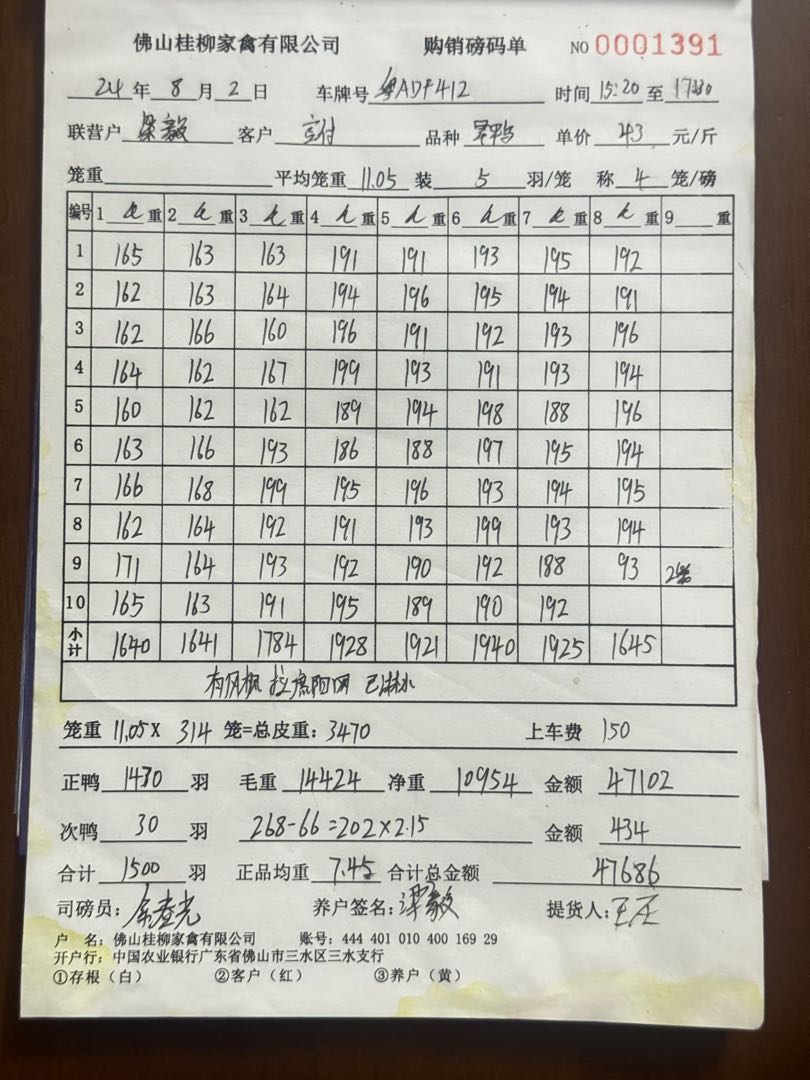 佛山桂柳家禽有限公司 购销磅码单 NO 0001391
24年8月2日 车牌号 粤ADF412 时间 15:20 至 17:30
联营户 梁毅 客户 品种 旱鸭 单价 43 元/斤
笼重 平均笼重 11.05 装 5 羽/笼 称 4 笼/磅
编号 1 重 2 重 3 重 4 重 5 重 6 重 7 重 8 重 9 重
1 165 163 163 191 191 193 195 192
2 162 163 164 194 196 195 194 191
3 162 166 160 196 191 192 193 196
4 164 162 167 199 193 191 193 194
5 160 162 162 189 194 198 188 196
6 163 166 193 186 188 197 195 194
7 166 168 199 195 196 193 194 195
8 162 164 192 191 193 199 193 194
9 171 164 193 192 190 192 188 93
10 165 163 191 195 189 190 192
小计 1640 1641 1784 1928 1921 1940 1925 1645
有风机 拉遮阳网 已淋水
笼重 11.05 X 314 笼=总皮重: 3470 上车费 150
正鸭 1430 羽 毛重 14424 净重 10954 金额 47102
次鸭 30 羽 268-66=202×2.15 金额 434
合计 1500 羽 正品均重 7.45 合计总金额 47686
司磅员: 养户签名: 梁毅 提货人:
户 名: 佛山桂柳家禽有限公司 账号: 444 401 010 400 169 29
开户行: 中国农业银行广东省佛山市三水区三水支行
①存根(白) ②客户(红) ③养户(黄)